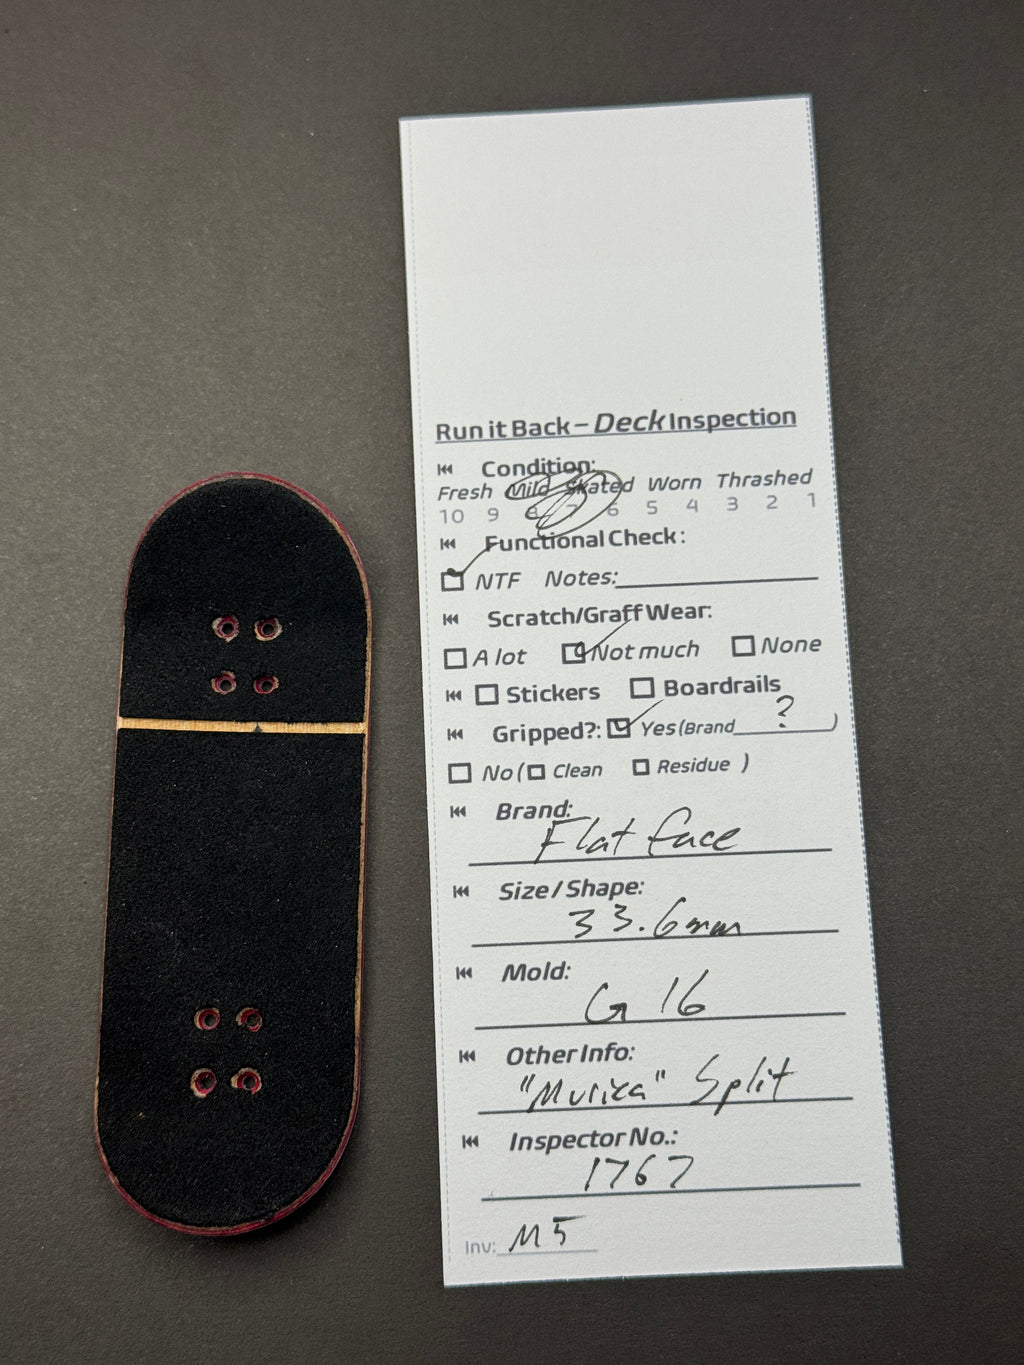 Run it Back – Deck Inspection
Condition:
Fresh Mild Skated Worn Thrashed
10 9 8 7 6 5 4 3 2 1
Functional Check:
NTF Notes:
Scratch/Graff Wear:
A lot Not much None
Stickers Boardrails
Gripped?: Yes (Brand ? )
No ( Clean Residue )
Brand:
Flatface
Size / Shape:
33.6mm
Mold:
G 16
Other Info:
"Murica" Split
Inspector No.:
1767
Inv: M5